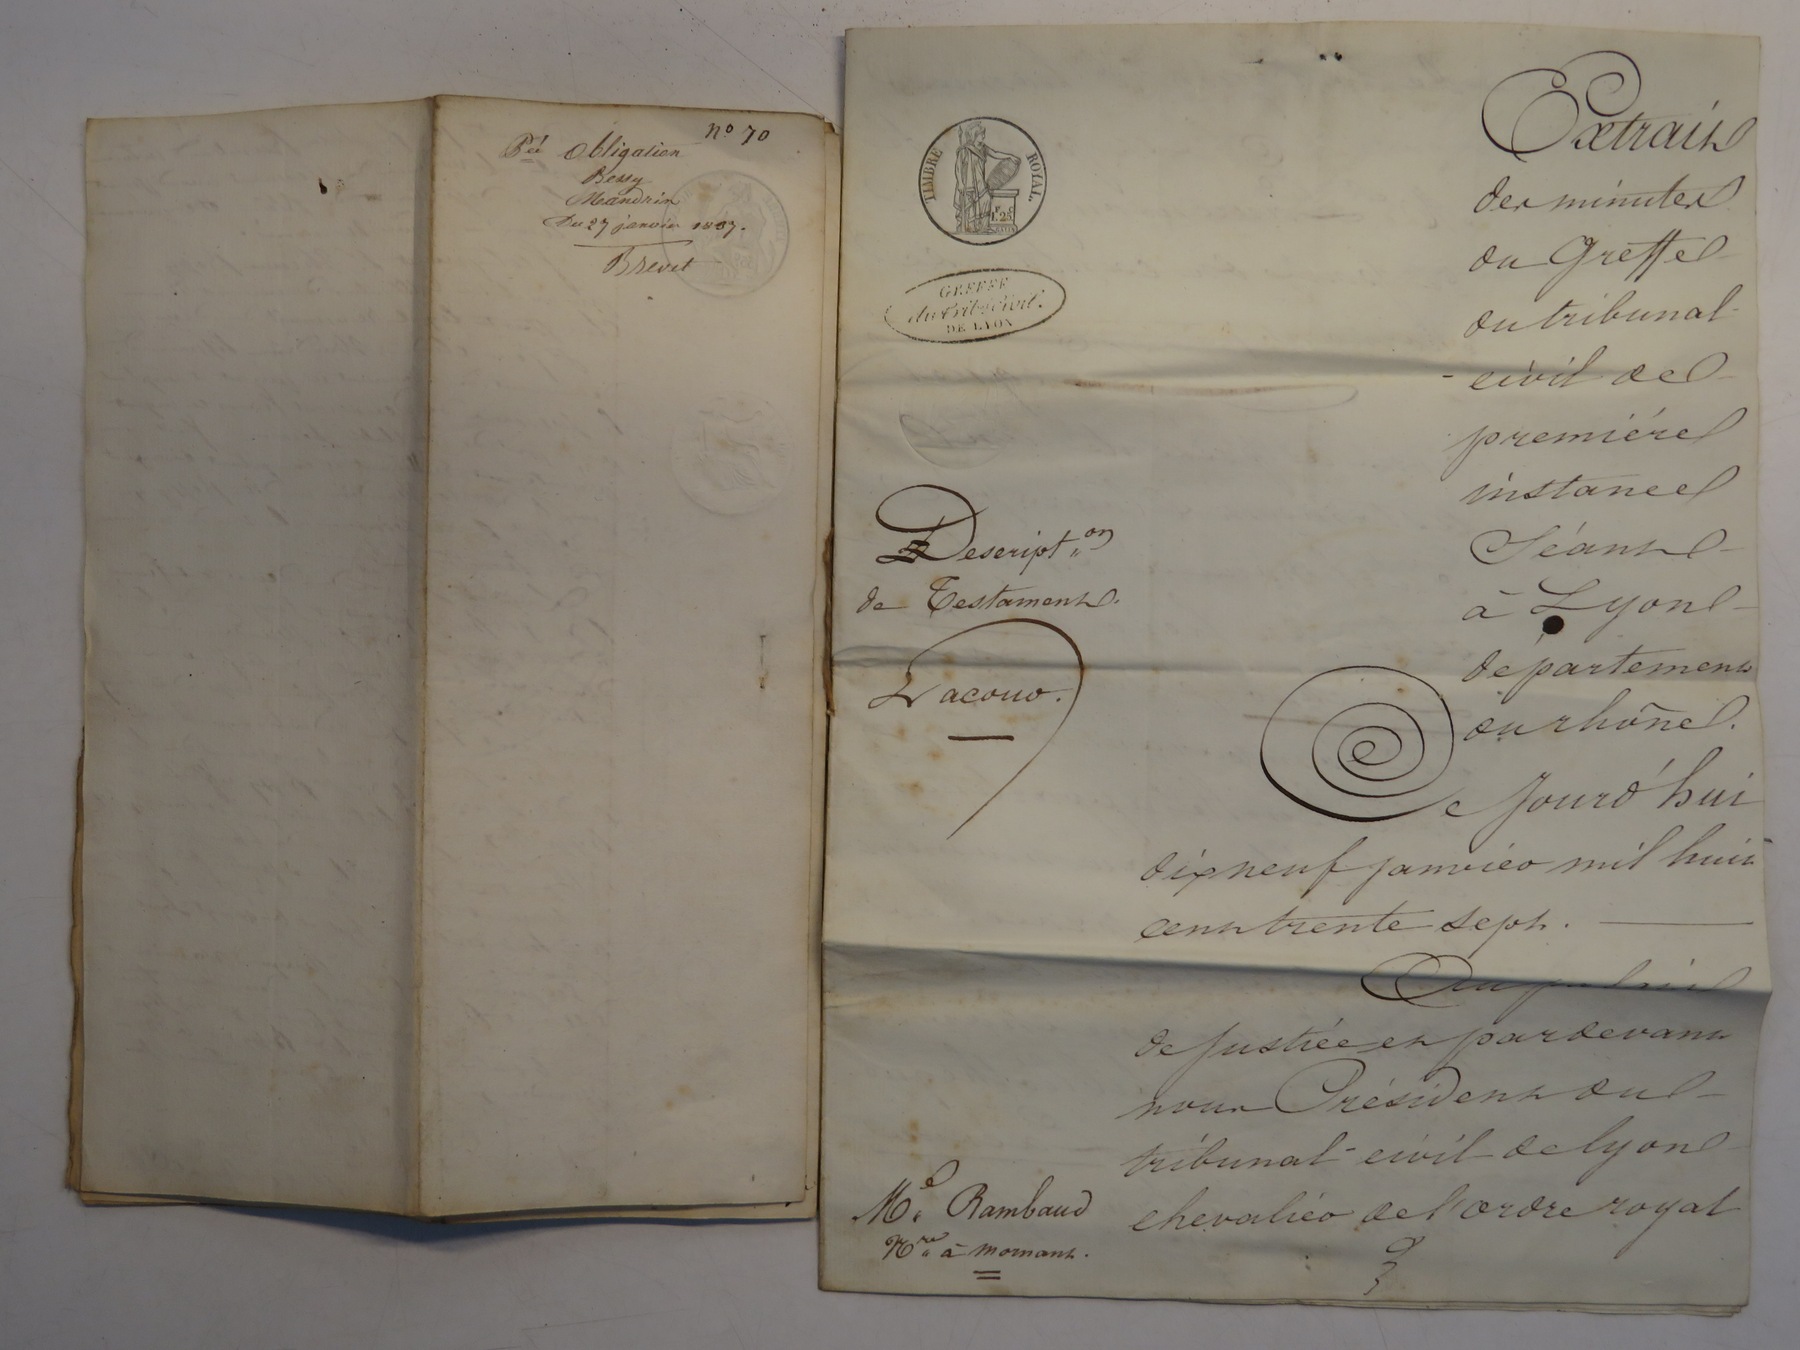 nº 70
Obligation
Bessy
Mandrin
Du 27 janvier 1837.
Brevet
TIMBRE ROYAL
F. C
1.25
GREFFE
du trib. civil.
DE LYON
Descript.on
de Testament.
Lacour.
Me. Rambaud
Nre. à mornant.
Extrait
des minutes
du Greffe
du tribunal
civil de
première
instance
Séant
à Lyon
département
du rhône.
Ce Jourd'hui
dix neuf janvier mil huit
cent trente sept.
Au palais
de justice et pardevant
nous Président du
tribunal civil de lyon
chevalier de l'ordre royal